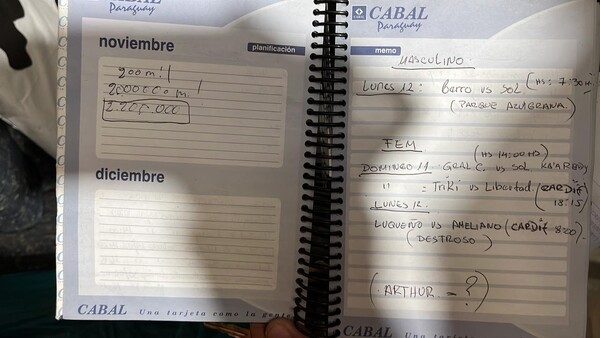 CABAL
Paraguay
noviembre
planificación
200 m!
2000000 m!
2.200.000
diciembre
CABAL Una tarjeta como la gente
CABAL
Paraguay
memo
MASCULINO
LUNES 12: Berro vs SOL (HS: 7:30
(PARQUE AZULGRANA.)
FEM
(HS 14:00 HS)
DOMINGO 11 GRAL C. vs SOL KA'ARBOY
" = Triki vs Libertad. (CARDIF
18:15)
LUNES 12.
LUQUEÑO vs AMELIANO (CARDIF 8:20).
(DESTROSO)
(ARTHUR = ?)
CABAL Una tarjeta como